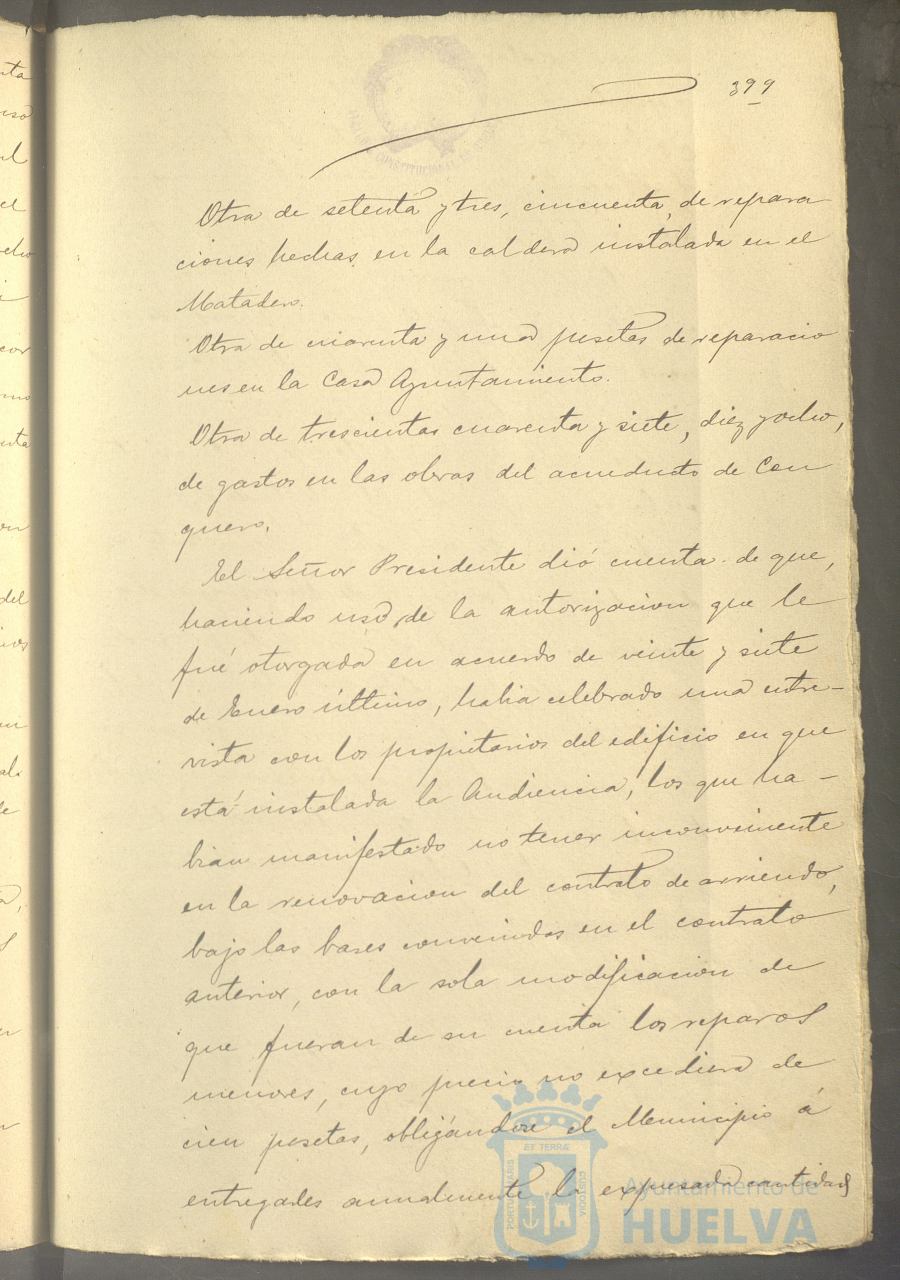 399
Otra de setenta y tres, cincuenta, de repara
ciones hechas en la caldera instalada en el
Matadero.
Otra de cuarenta y una pesetas de reparacio
nes en la Casa Ayuntamiento.
Otra de trescientas cuarenta y siete, diez y ocho,
de gastos en las obras del acueducto de Con
quero.
El Señor Presidente dió cuenta de que,
haciendo uso de la autorizacion que le
fué otorgada en acuerdo de veinte y siete
de Enero último, habia celebrado una entre-
vista con los propietarios del edificio en que
está instalada la Audiencia, los que ha-
bian manifestado no tener inconveniente
en la renovacion del contrato de arriendo,
bajo las bases convenidas en el contrato
anterior, con la sola modificacion de
que fueran de su cuenta los reparos
menores, cuyo precio no excediera de
cien pesetas, obligándose el Municipio á
entregarles anualmente la expresada cantidad
ET TERRÆ
PORTUS MARIS
CUSTODIA
Ayuntamiento de
HUELVA